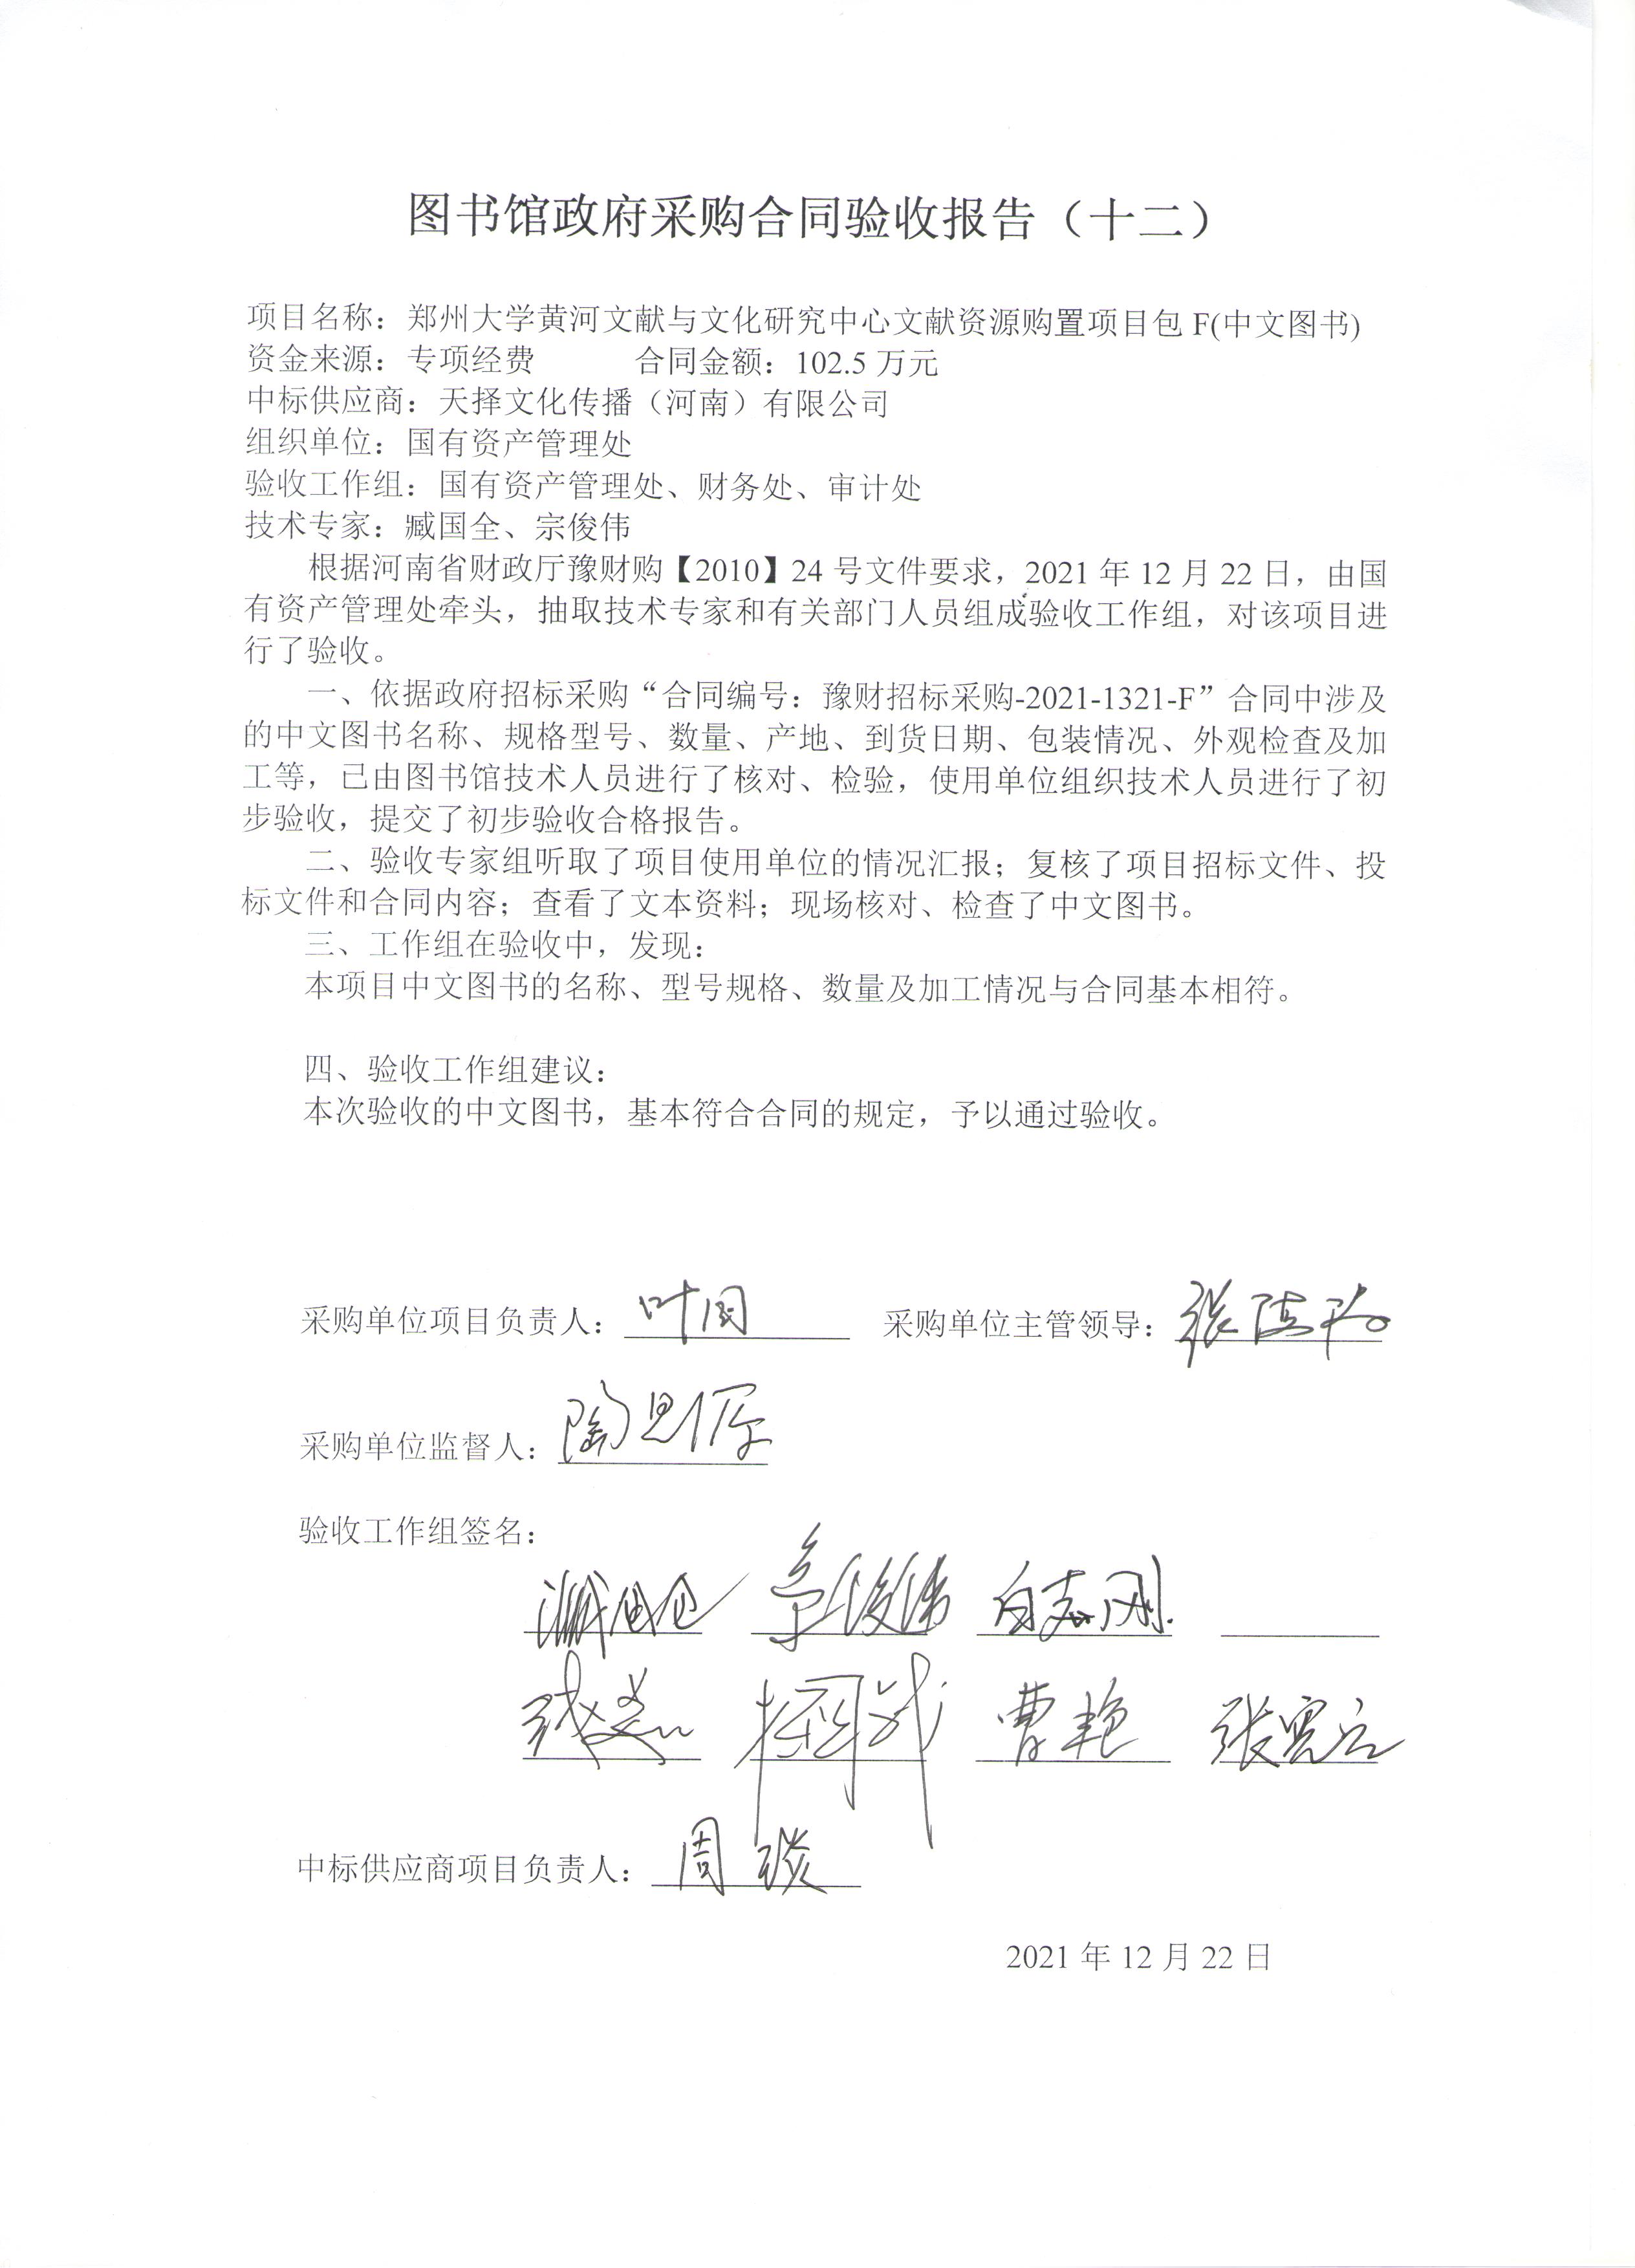 图书馆政府采购合同验收报告（十二）
项目名称：郑州大学黄河文献与文化研究中心文献资源购置项目包 F(中文图书)
资金来源：专项经费 合同金额：102.5 万元
中标供应商：天择文化传播（河南）有限公司
组织单位：国有资产管理处
验收工作组：国有资产管理处、财务处、审计处
技术专家：臧国全、宗俊伟
根据河南省财政厅豫财购【2010】24 号文件要求，2021 年 12 月 22 日，由国
有资产管理处牵头，抽取技术专家和有关部门人员组成验收工作组，对该项目进
行了验收。
一、依据政府招标采购“合同编号：豫财招标采购-2021-1321-F”合同中涉及
的中文图书名称、规格型号、数量、产地、到货日期、包装情况、外观检查及加
工等，已由图书馆技术人员进行了核对、检验，使用单位组织技术人员进行了初
步验收，提交了初步验收合格报告。
二、验收专家组听取了项目使用单位的情况汇报；复核了项目招标文件、投
标文件和合同内容；查看了文本资料；现场核对、检查了中文图书。
三、工作组在验收中，发现：
本项目中文图书的名称、型号规格、数量及加工情况与合同基本相符。
四、验收工作组建议：
本次验收的中文图书，基本符合合同的规定，予以通过验收。
采购单位项目负责人： 采购单位主管领导：
采购单位监督人：
验收工作组签名：
宗俊伟 白志刚
曹艳
中标供应商项目负责人：
2021 年 12 月 22 日